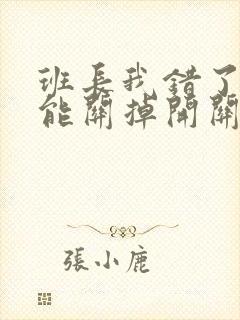 班長我錯了
能關掉開關
張小鹿